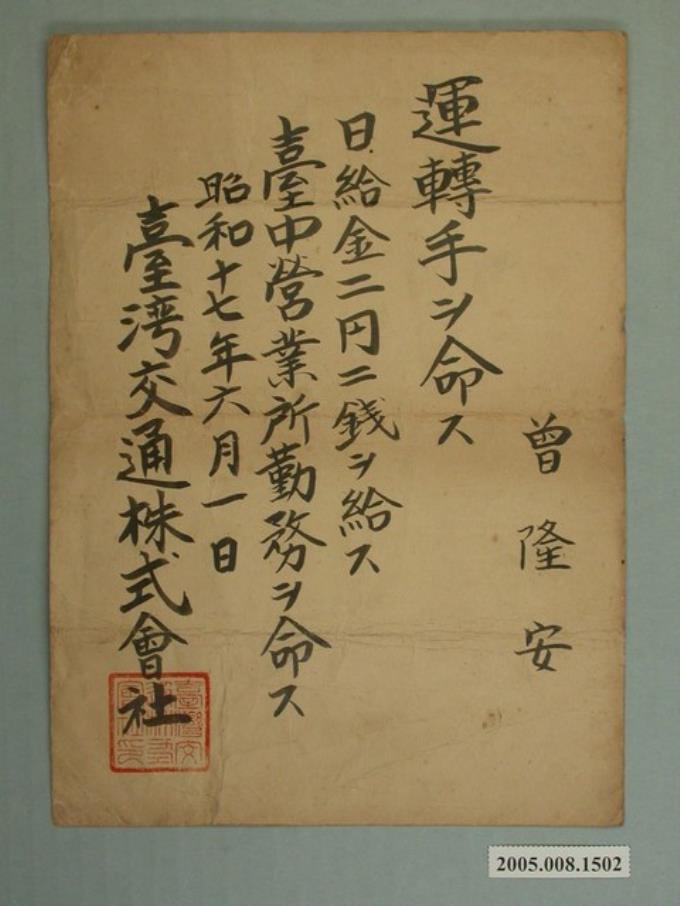 曾隆安
運轉手ヲ命ス
日給金二円二銭ヲ給ス
臺中営業所勤務ヲ命ス
昭和十七年六月一日
臺湾交通株式會社
2005.008.1502